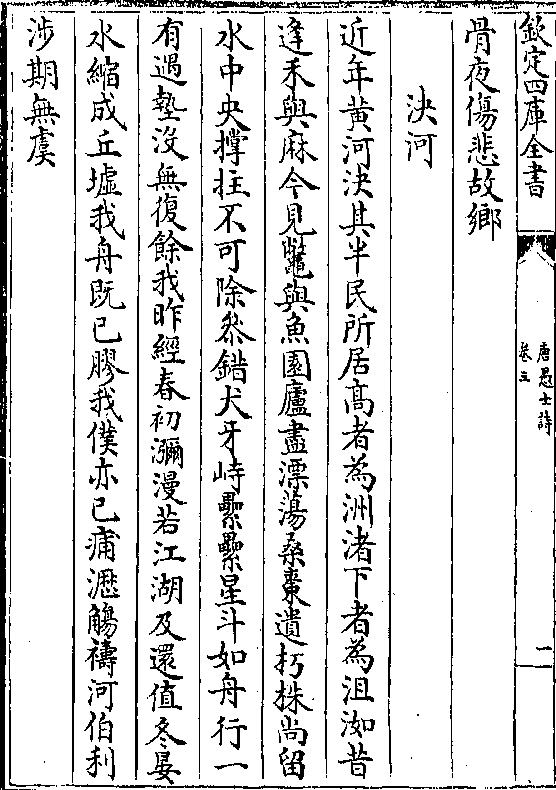 欽定四庫全書
唐愚士詩
卷三
二
骨夜傷悲故鄉
決河
近年黄河決其半民所居髙者為洲渚下者為沮洳昔
逢禾與麻今見鼈與魚園廬盡漂蕩桑棗遺朽株尚留
水中央撐拄不可除叅錯犬牙峙纍纍星斗如舟行一
有遇墊没無復餘我昨經春初瀰漫若江湖及還值冬晏
水縮成丘墟我舟既已膠我僕亦已痡瀝觴禱河伯利
涉期無虞